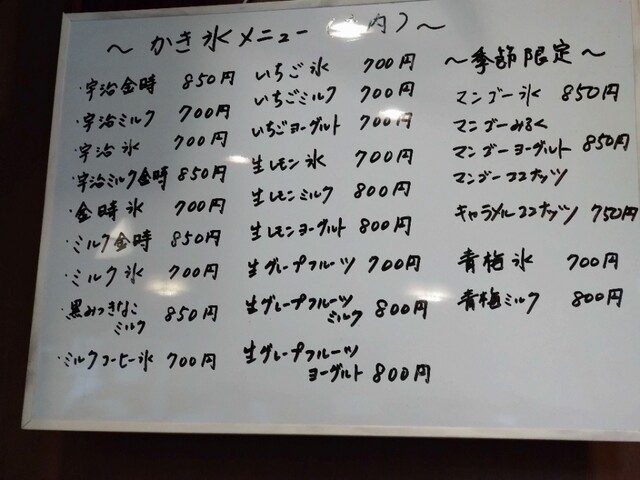 ～かき氷メニュー（ 内）～
・宇治金時 850円
・宇治ミルク 700円
・宇治氷 700円
・宇治ミルク金時 850円
・金時氷 700円
・ミルク金時 850円
・ミルク氷 700円
・黒みつきなこ
ミルク 850円
・ミルクコーヒー氷 700円
いちご氷 700円
いちごミルク 700円
いちごヨーグルト 700円
生レモン氷 700円
生レモンミルク 800円
生レモンヨーグルト 800円
生グレープフルーツ 700円
生グレープフルーツ
ミルク 800円
生グレープフルーツ
ヨーグルト 800円
～季節限定～
マンゴー氷 850円
マンゴーみるく
マンゴーヨーグルト 850円
マンゴーココナッツ
キャラメルココナッツ 750円
青梅氷 700円
青梅ミルク 800円